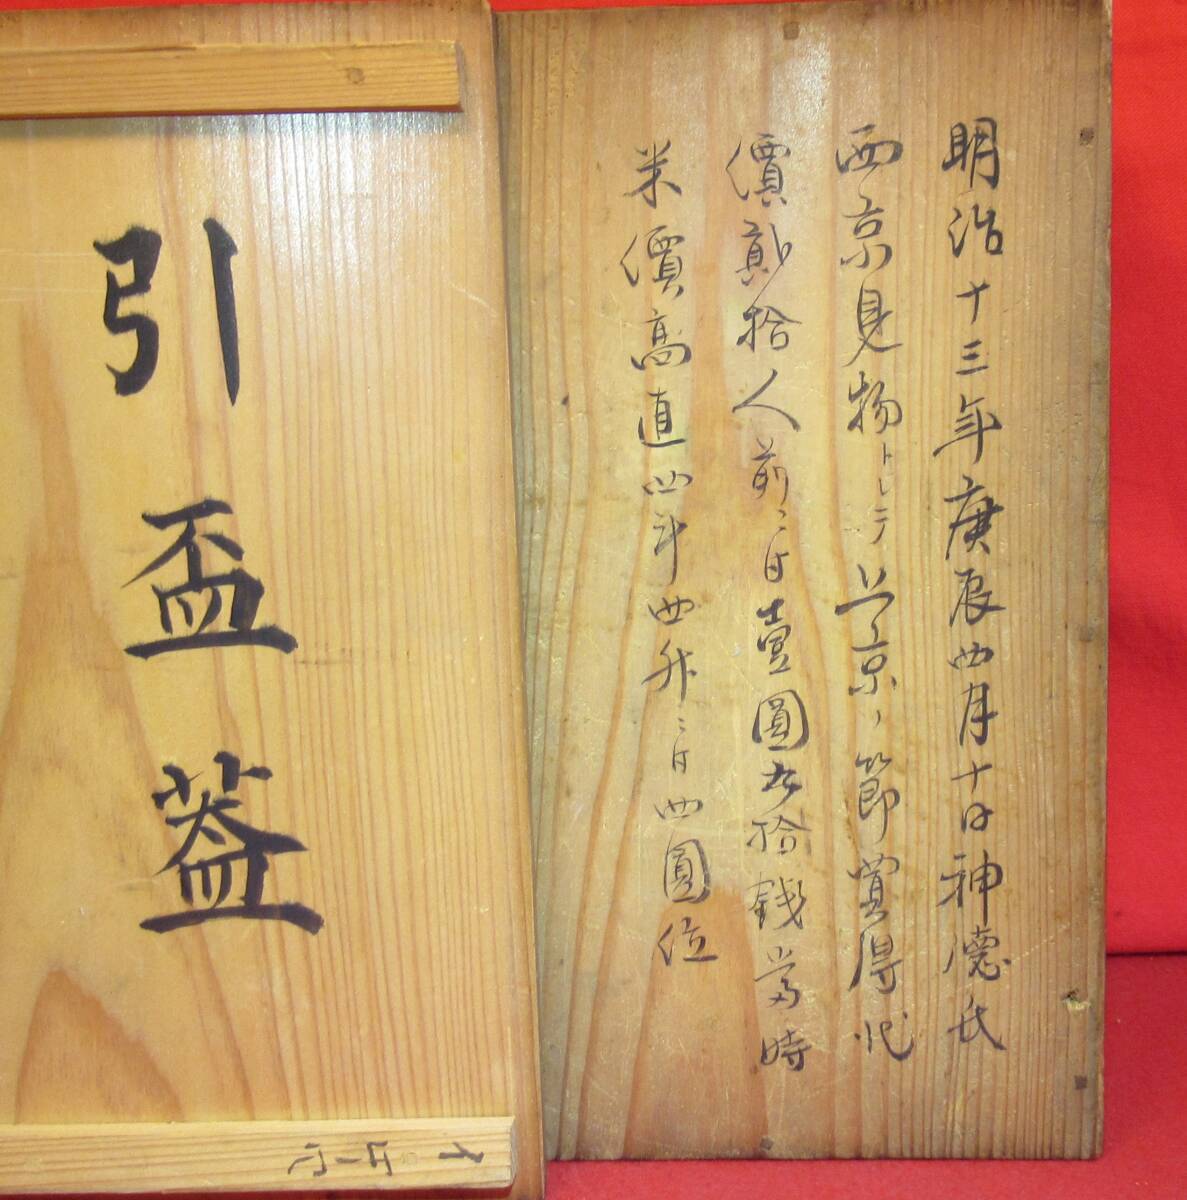 明治十三年庚辰四月十日神徳氏
西京見物トシテ上京ノ節買得代
價貳拾人前ニ付壹圓五拾銭当時
米價高直四斗四升ニ付四圓位
引盃蓋